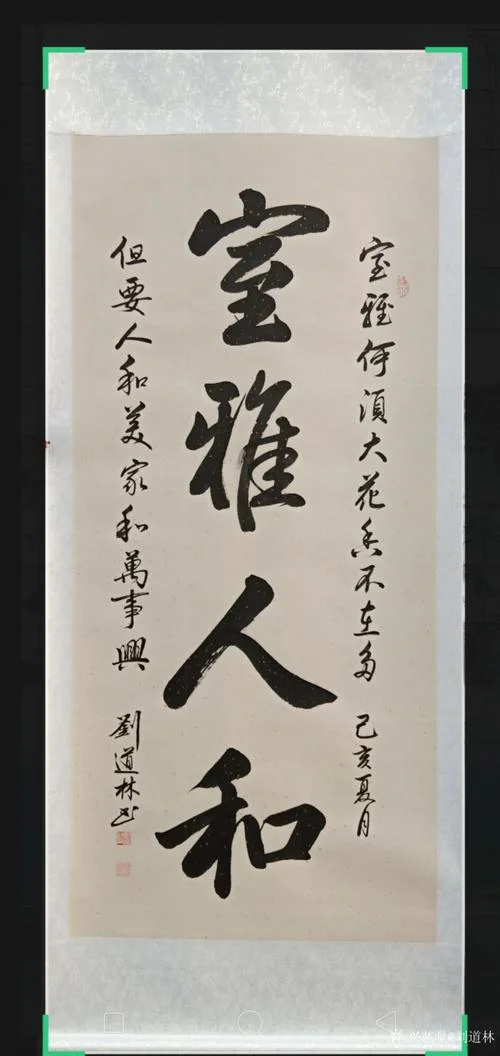 室雅何須大花香不在多 己亥夏月
室雅人和
但要人和美家和萬事興 劉道林书
刘道林